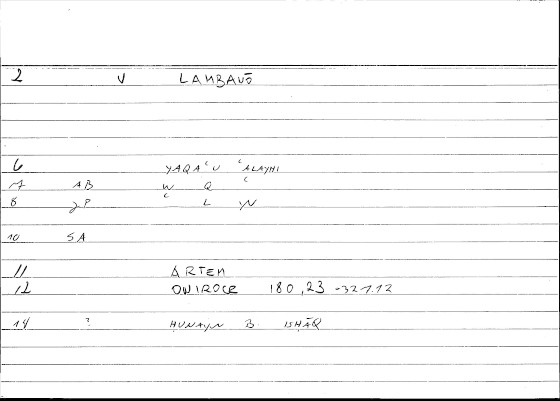 2 V LAMBAVŌ
6 YAQAʿU ʿALAYHI
7 AB W Q ʿ
8 2P ʿ L YN
10 SA
11 ARTEM
12 ONIROCR 180,23 -321.12
14 ? ḤUNAYN B. ISḤĀQ